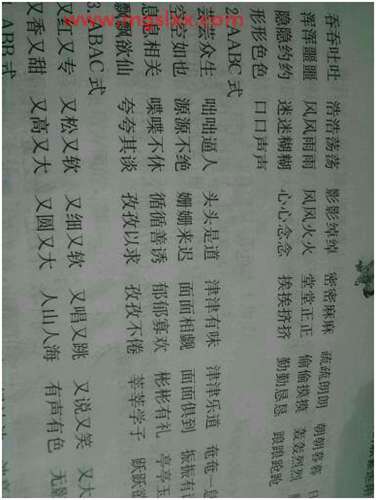 www.mgslxx.com
吞吞吐吐 浩浩荡荡 影影绰绰 密密麻麻 疏疏朗朗 朝朝暮暮
浑浑噩噩 风风雨雨 风风火火 堂堂正正 偷偷摸摸 轰轰烈烈
隐隐约约 迷迷糊糊 心心念念 挨挨挤挤 勤勤恳恳 踉踉跄跄
形形色色 口口声声
2. AABC 式
芸芸众生 咄咄逼人 头头是道 津津有味 津津乐道 奄奄一
空空如也 源源不绝 姗姗来迟 面面相觑 面面俱到 振振有
息息相关 喋喋不休 循循善诱 郁郁寡欢 彬彬有礼 亭亭玉
飘飘欲仙 夸夸其谈 孜孜以求 孜孜不倦 莘莘学子 跃跃欲
3. ABAC 式
又红又专 又松又软 又细又软 又唱又跳 又说又笑 又大
又香又甜 又高又大 又圆又大 人山人海 有声有色 无
ABB 式